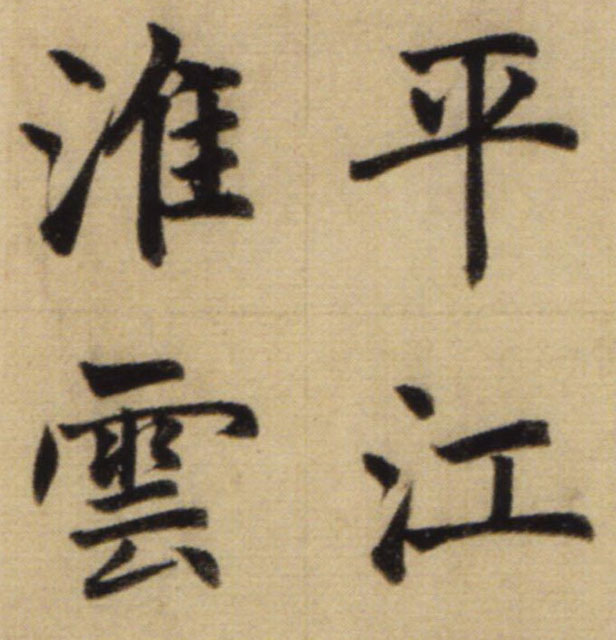 平江
淮雲